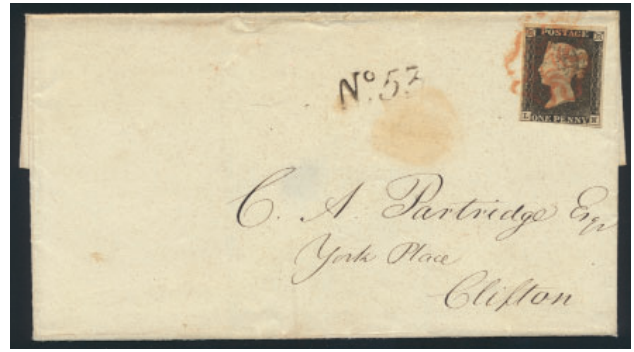 POSTAGE
ONE PENNY
No. 53
C. A. Partridge Esqr
York Place
Clifton